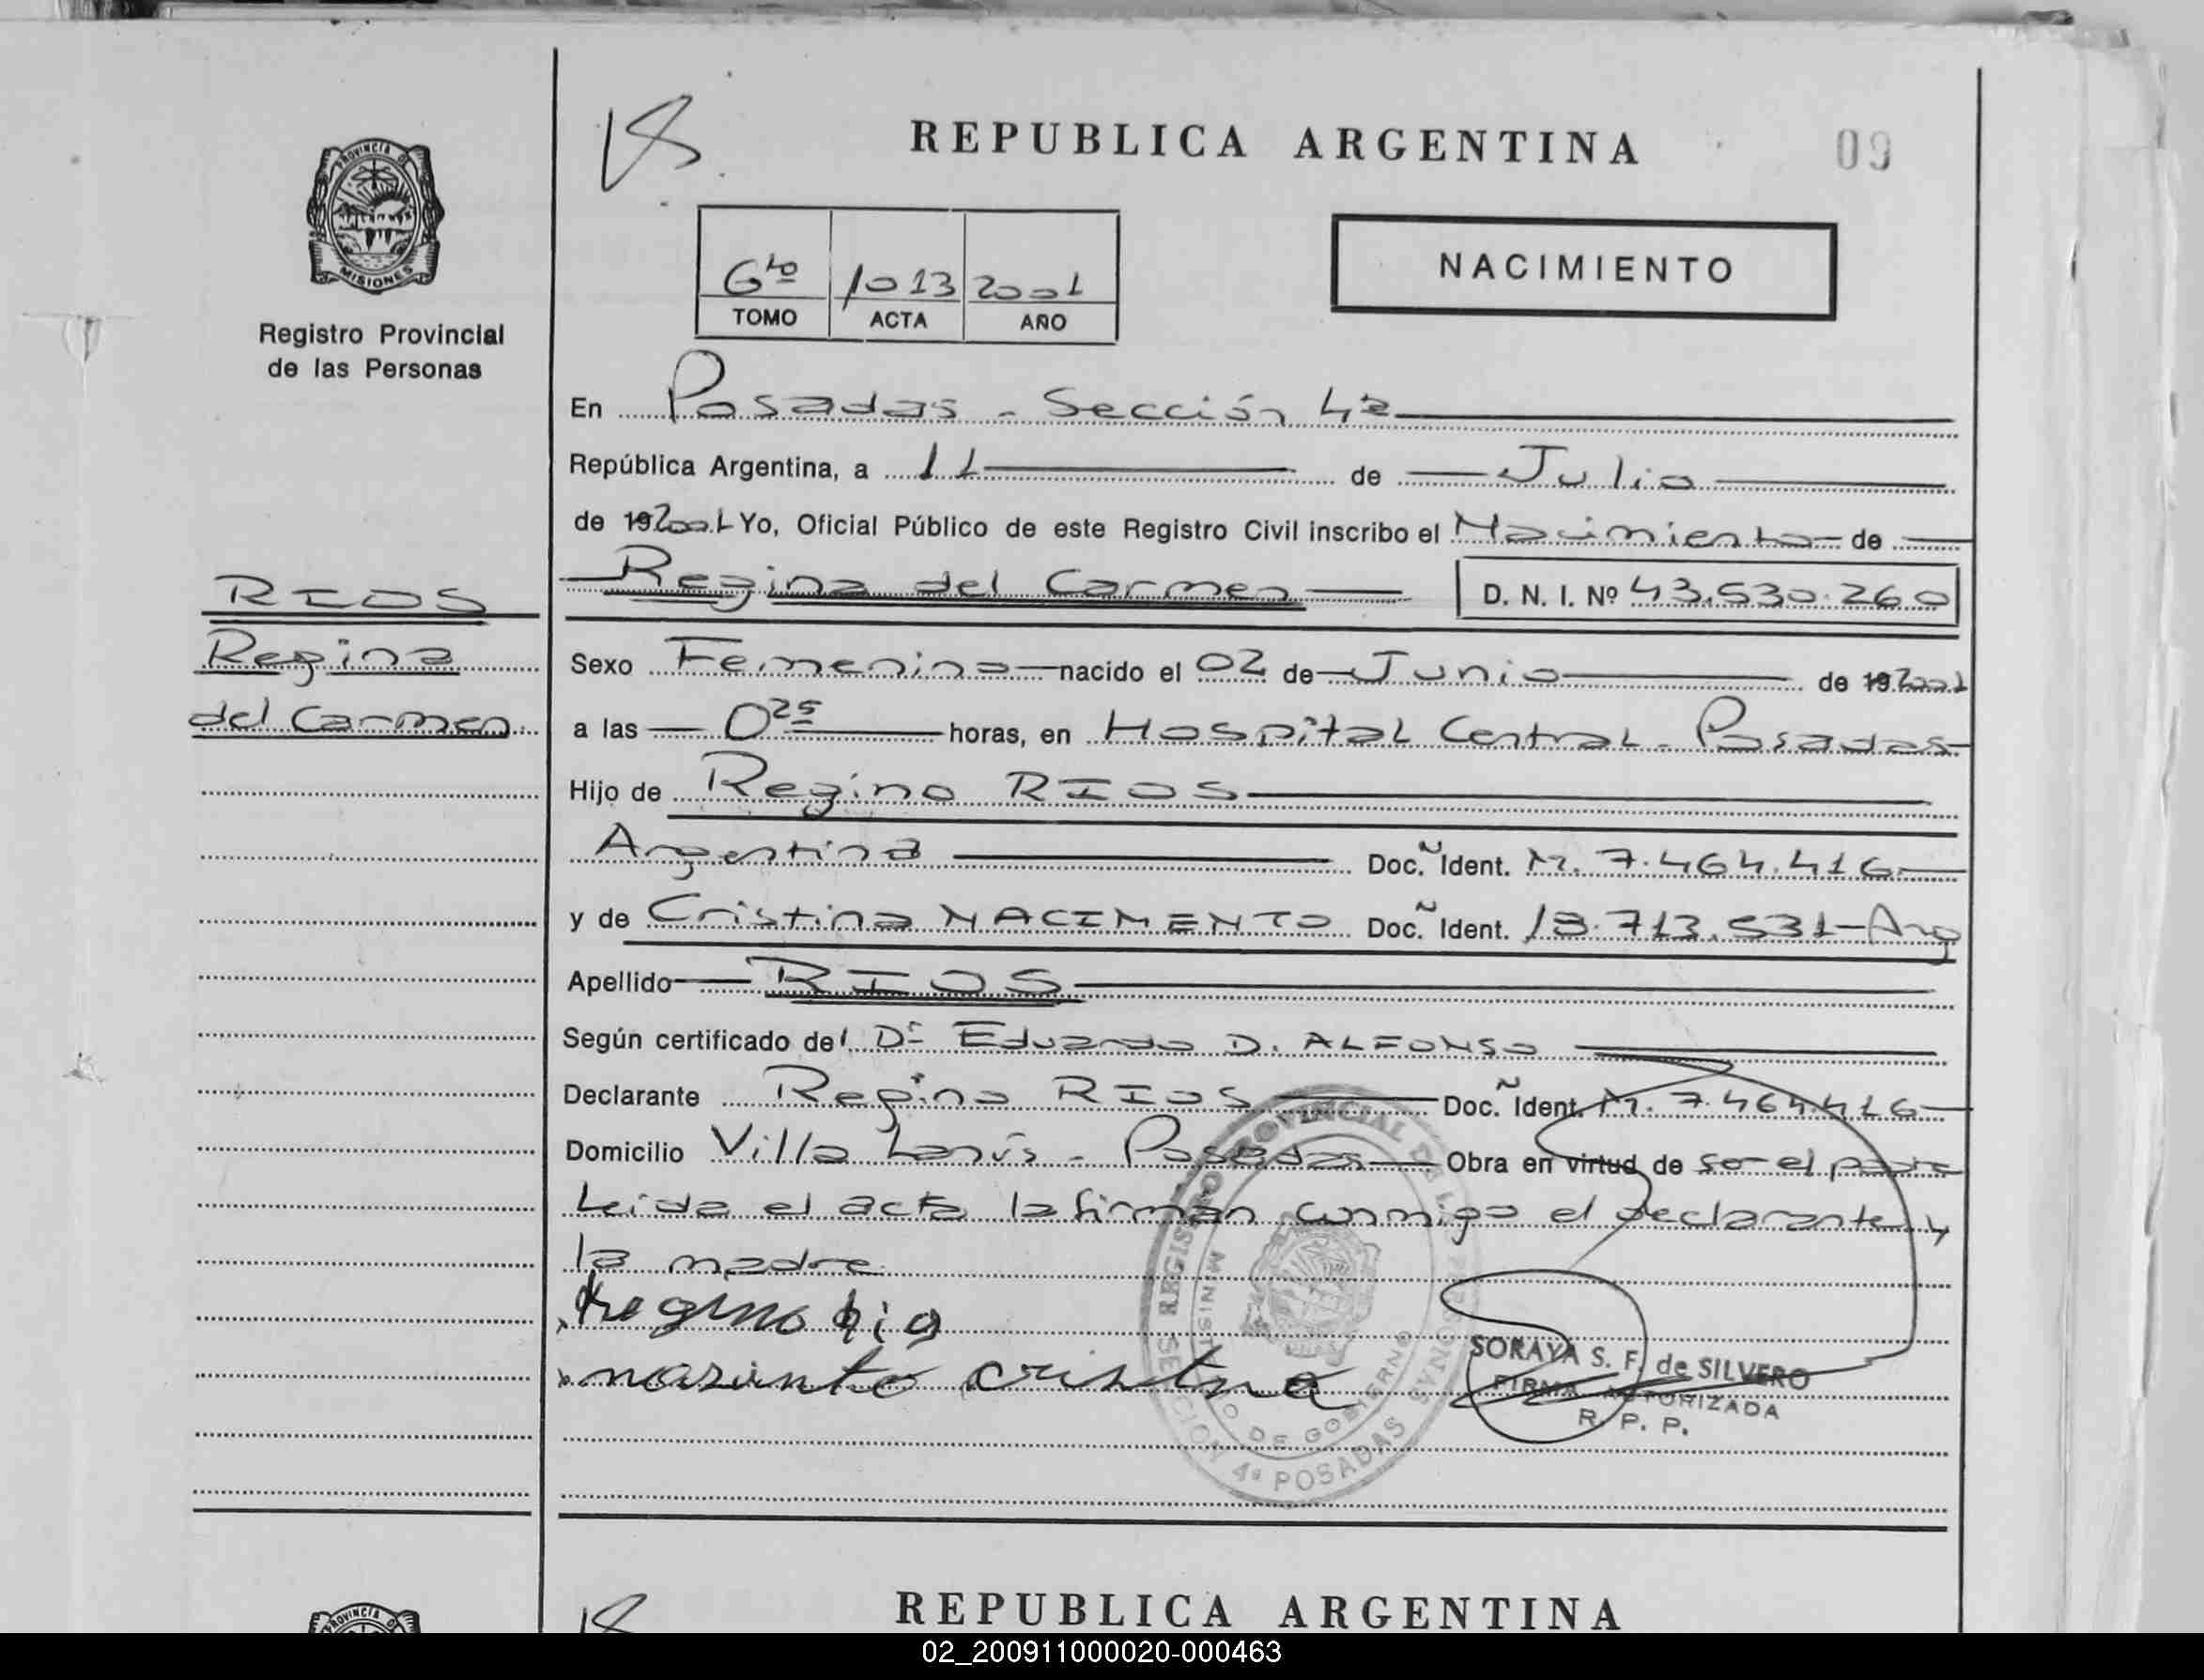 REPUBLICA ARGENTINA
09
PROVINCIA DE
MISIONES
Registro Provincial
de las Personas
6to 1013 2001
TOMO ACTA AÑO
NACIMIENTO
En Posadas - Sección 4a
República Argentina, a 11 de Julio
de 192001 Yo, Oficial Público de este Registro Civil inscribo el Nacimiento de
Regina del Carmen D. N. I. Nº 43.530.260
RIOS
Regina
del Carmen
Sexo Femenino nacido el 02 de Junio de 192001
a las 0 25 horas, en Hospital Central - Posadas
Hijo de Regino RIOS
Argentina Doc. Ident. M. 7.464.416
y de Cristina NACIMENTO Doc. Ident. 18.713.531-Arg
Apellido RIOS
Según certificado del Dr Eduardo D. ALFONSO
Declarante Regino RIOS Doc. Ident. M. 7.464.416
Domicilio Villa Lanús - Posadas Obra en virtud de ser el padre
Leída el acta la firman conmigo el declarante y
la madre
Regino Rio
nasimto cristina
REGISTRO PROVINCIAL DE LAS PERSONAS
MINISTERIO DE GOBIERNO
SECCION 4ª POSADAS
SORAYA S. F. de SILVERO
FIRMA AUTORIZADA
R. P. P.
PROVINCIA DE
REPUBLICA ARGENTINA
02_200911000020-000463